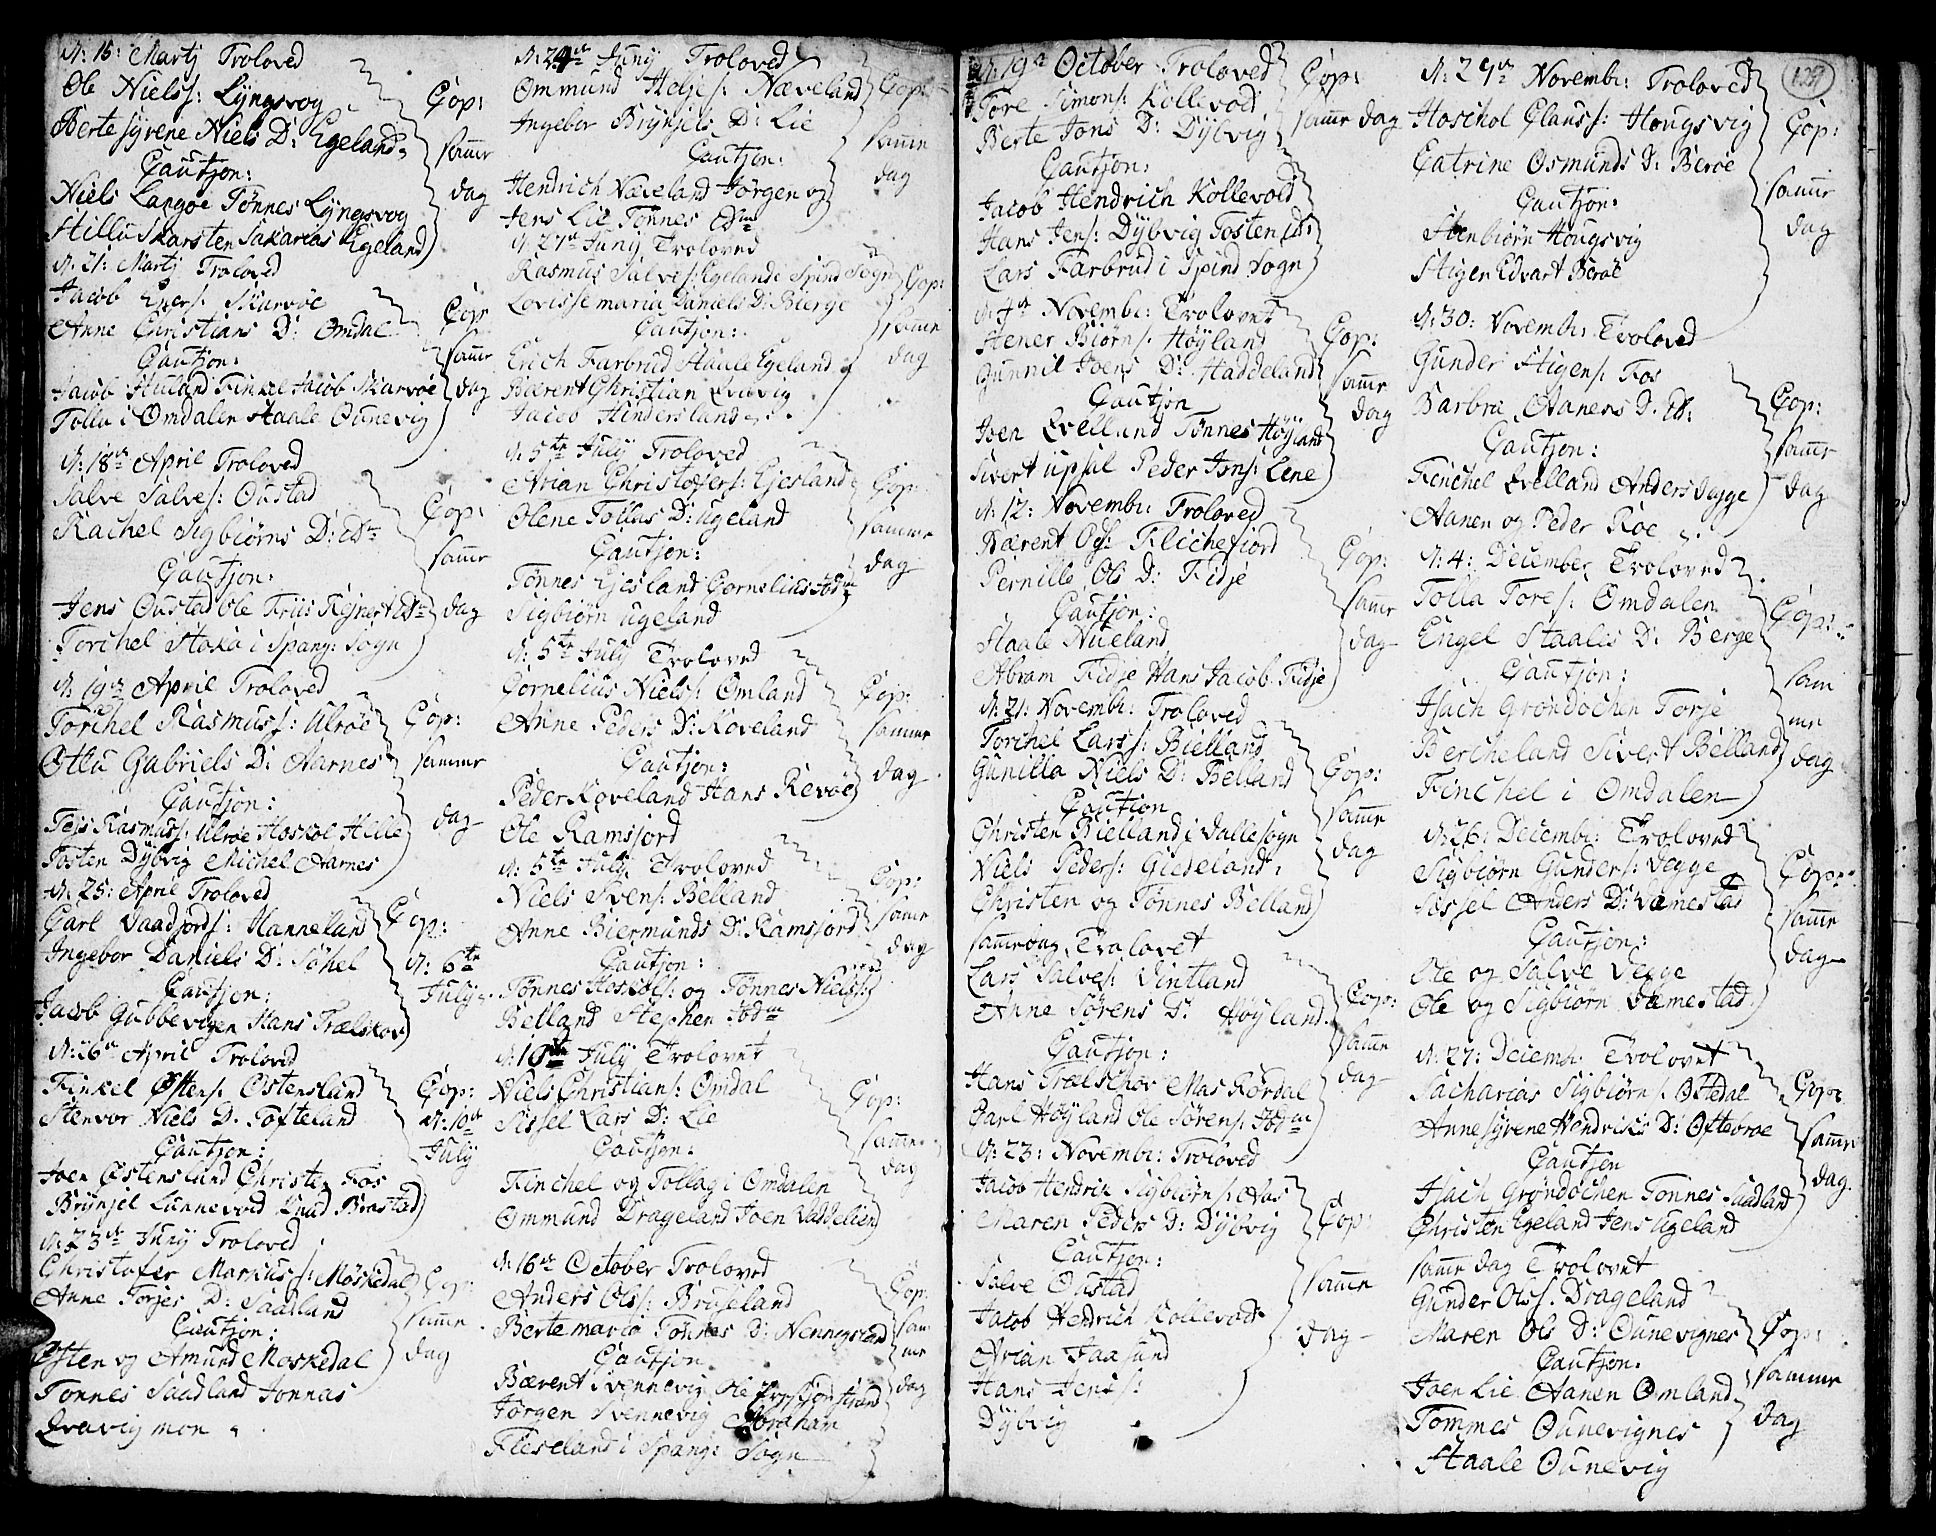 N: 15: Martj Troloved
Ole Nielss: Lyngsvog
Berte syrene Niels D: Egeland
Cautjon:
Niels Langoe Tønnes Lyngsvog
Hillu Skarsten Sakarias Egeland
Cop:
samr
dag
N: 21: Martj Troloved
Jacob Eners: Skurvoe
Anne Christians D: Omdal
Cautjon:
Jacob Finkel Jacob Skarvoe
Tolla i Omdalen Staale Ounevig
Cop
samr
dag
N: 18de April Troloved
Salve Salves: Oustad
Rachel Sigbiørns D: ibdm
Cautjon:
Jens Oustad Ole Friis Rejnert ibdm
Torchel Stoxo i Spang: Sogn
Cop:
samr
dag
N: 19de April Troloved
Torchel Rasmuss: Ulroe
Otlu Gabriels D: Aarnes
Cautjon:
Tejs Rasmuss: Ulroe Hoskol Hille
Tosten Dybvig Michel Aarnes
Cop:
sammr
dag
N: 25: April Troloved
Carl Daadfjords: Hanneland
Ingebor Daniels D: Søhel
Cautjon:
Jacob Gubbevigen Hans Trælskov
Cop:
N: 6te
July
N: 26de April Troloved
Finkel Østens: Ostensland
Stenvor Niels D: Tofteland
Cautjon:
Joen Ostensland Christen Fos
Brynjel Lunnevold Knud Birastad
Cop:
N: 10de
July
N: 23de Juny Troloved
Christofer Markuss: Møskedal
Anne Torjes D: Saadland
Cautjon:
Østen og Amund Møskedal
Tønnes Saadland Jonnas
Qvavig mon
Cop:
samr
dag
N: 24de Juny Troloved
Ommund Heljes: Næveland
Ingebor Brynjels D: Lie
Cautjon:
Hendrich Næveland Jørgen og
Jens Lie Tønnes ibdm
Cop:
samr
dag
N: 27de Juny Troloved
Rasmus Salves: Egelande Spind Sogn
Lovisse maria Daniels D: Bierge
Cautjon:
Erich Farbrud Staale Egeland
Bærent Christian Qvavig
Jacob Hindersland
Cop:
samr
dag
N: 5te July Troloved
Arian Christofers: Ejesland
Olene Tollus D: Ugeland
Cautjon:
Tønnes Ejesland Cornelius ibdm
Sigbiørn ugeland
Cop:
sammr
dag
N: 5te July Troloved
Cornelius Nielss: Omland
Anne Peders D: Koveland
Cautjon:
Peder Koveland Hans Revoe
Ole Ramsjord
Cop:
sammr
dag
N: 5te July Troloved
Niels Svens: Belland
Anne Biermunds D: Ramsjord
Cautjon:
Tønnes Hoskols: og Tønnes Nielss:
Belland Stephen ibdm
Cop:
samr
dag
N: 10de July Trolovet
Niels Christians: Omdal
Sissel Lars D: Lie
Cautjon:
Finchel og Tollag i Omdalen
Ommund Drageland Joen Laddelien
Cop:
samr
dag
N: 16de October Troloved
Anders Olss: Bruseland
Berte maria Tønnes D: Hennigstad
Cautjon
Bærent Svennevig Ole
Jørgen Svennevig Abraham
Fieseland i Spang: Sogn
Cop:
sam
mr
dag
N: 19de October Troloved
Tore Simons: Kollevold
Berte Jons D: Dybvig
Cautjon:
Jacob Hendrich Kollevold
Hans Jens: Dybvig Tosten ibd:
Lars Farbrud i Spind Sogn
Cop:
samr dag
N: 4de Novembr: Trolovet
Stener Biørns: Høyland
Gunnil Joens D: Haddeland
Cautjon
Joen Qvelland Tønnes Høyland
Sivert upsal Peder Jons: Lene
Cop:
samr
dag
N: 12: Novembr: Troloved
Bærent Ols: Flichefiord
Pernille Ols D: Fidje
Cautjon:
Staale Nueland
Abram Fidje Hans Jacob: Fidje
Cop:
samr
dag
N: 21: Novembr: Troloved
Torchel Larss: Bielland
Gunilla Niels D: Belland
Caution
Christen Bielland i Vallesogn
Niels Peders: Giedeland
Christen og Tønnes Belland
Cop:
samr
dag
samedag Trolovet
Lars Salves: Vintland
Anne Sørens D: Høyland
Cautjon:
Hans Trælschov Mas Rørdal
Carl Høyland Ole Sørens: ibdm
Cop:
samr
dag
N: 23: Novembr: Troloved
Jacob Hendrik Sigbiørns: Aas
Maren Peders D: Dybvig
Cautjon:
Salve Oustad
Jacob Hendrich Kollevold
Arian Faasund
Hans Jens:
Dybvig
Cop:
samr
dag
137
N: 29de Novembr: Troloved
Hoschol Clauss: Hougsvig
Catrine Osmunds D: Beroe
Cautjon:
Stenbiørn Hougsvig
Stigen Edvart Beroe
Cop:
samr
dag
N: 30: Novembr: Troloved
Gunder Stigens: Fos
Barbra Aanens D: ib:
Cautjon:
Finchel Qvelland Anders Vegge
Aanen og Peder Roe
Cop:
samr
dag
N: 4: December Troloved
Tolla Tores: Omdalen
Engel Staales D: Berge
Cautjon:
Isach Grøndochen Torje
Bercheland Sivert Belland
Finchel i Omdalen
Cop:
sam
mr
dag
N: 26: Decembr: Troloved
Sigbiørn Gunders: Vegge
Sissel Anders D: Væmestad
Cautjon:
Ole og Salve Vegge
Ole og Sigbiørn Væmestad
Cop:
samr
dag
N: 27: Decemb: Trolovet
Sacharias Sigbiørns: Oftedal
Anne syrene Hendriks D: Oftevroe
Cautjon
Isach Grøndochen Tønnes Saadland
Christen Egeland Jens Ugeland
Cop:
samr
dag.
samr dag Trolovet
Gunder Olss: Drageland
Maren Ols D: Ounevignes
Cautjon:
Joen Lie Aanen Omland
Tommes Ounevignes
Staale Ounevig
Cop:
sammr
dag